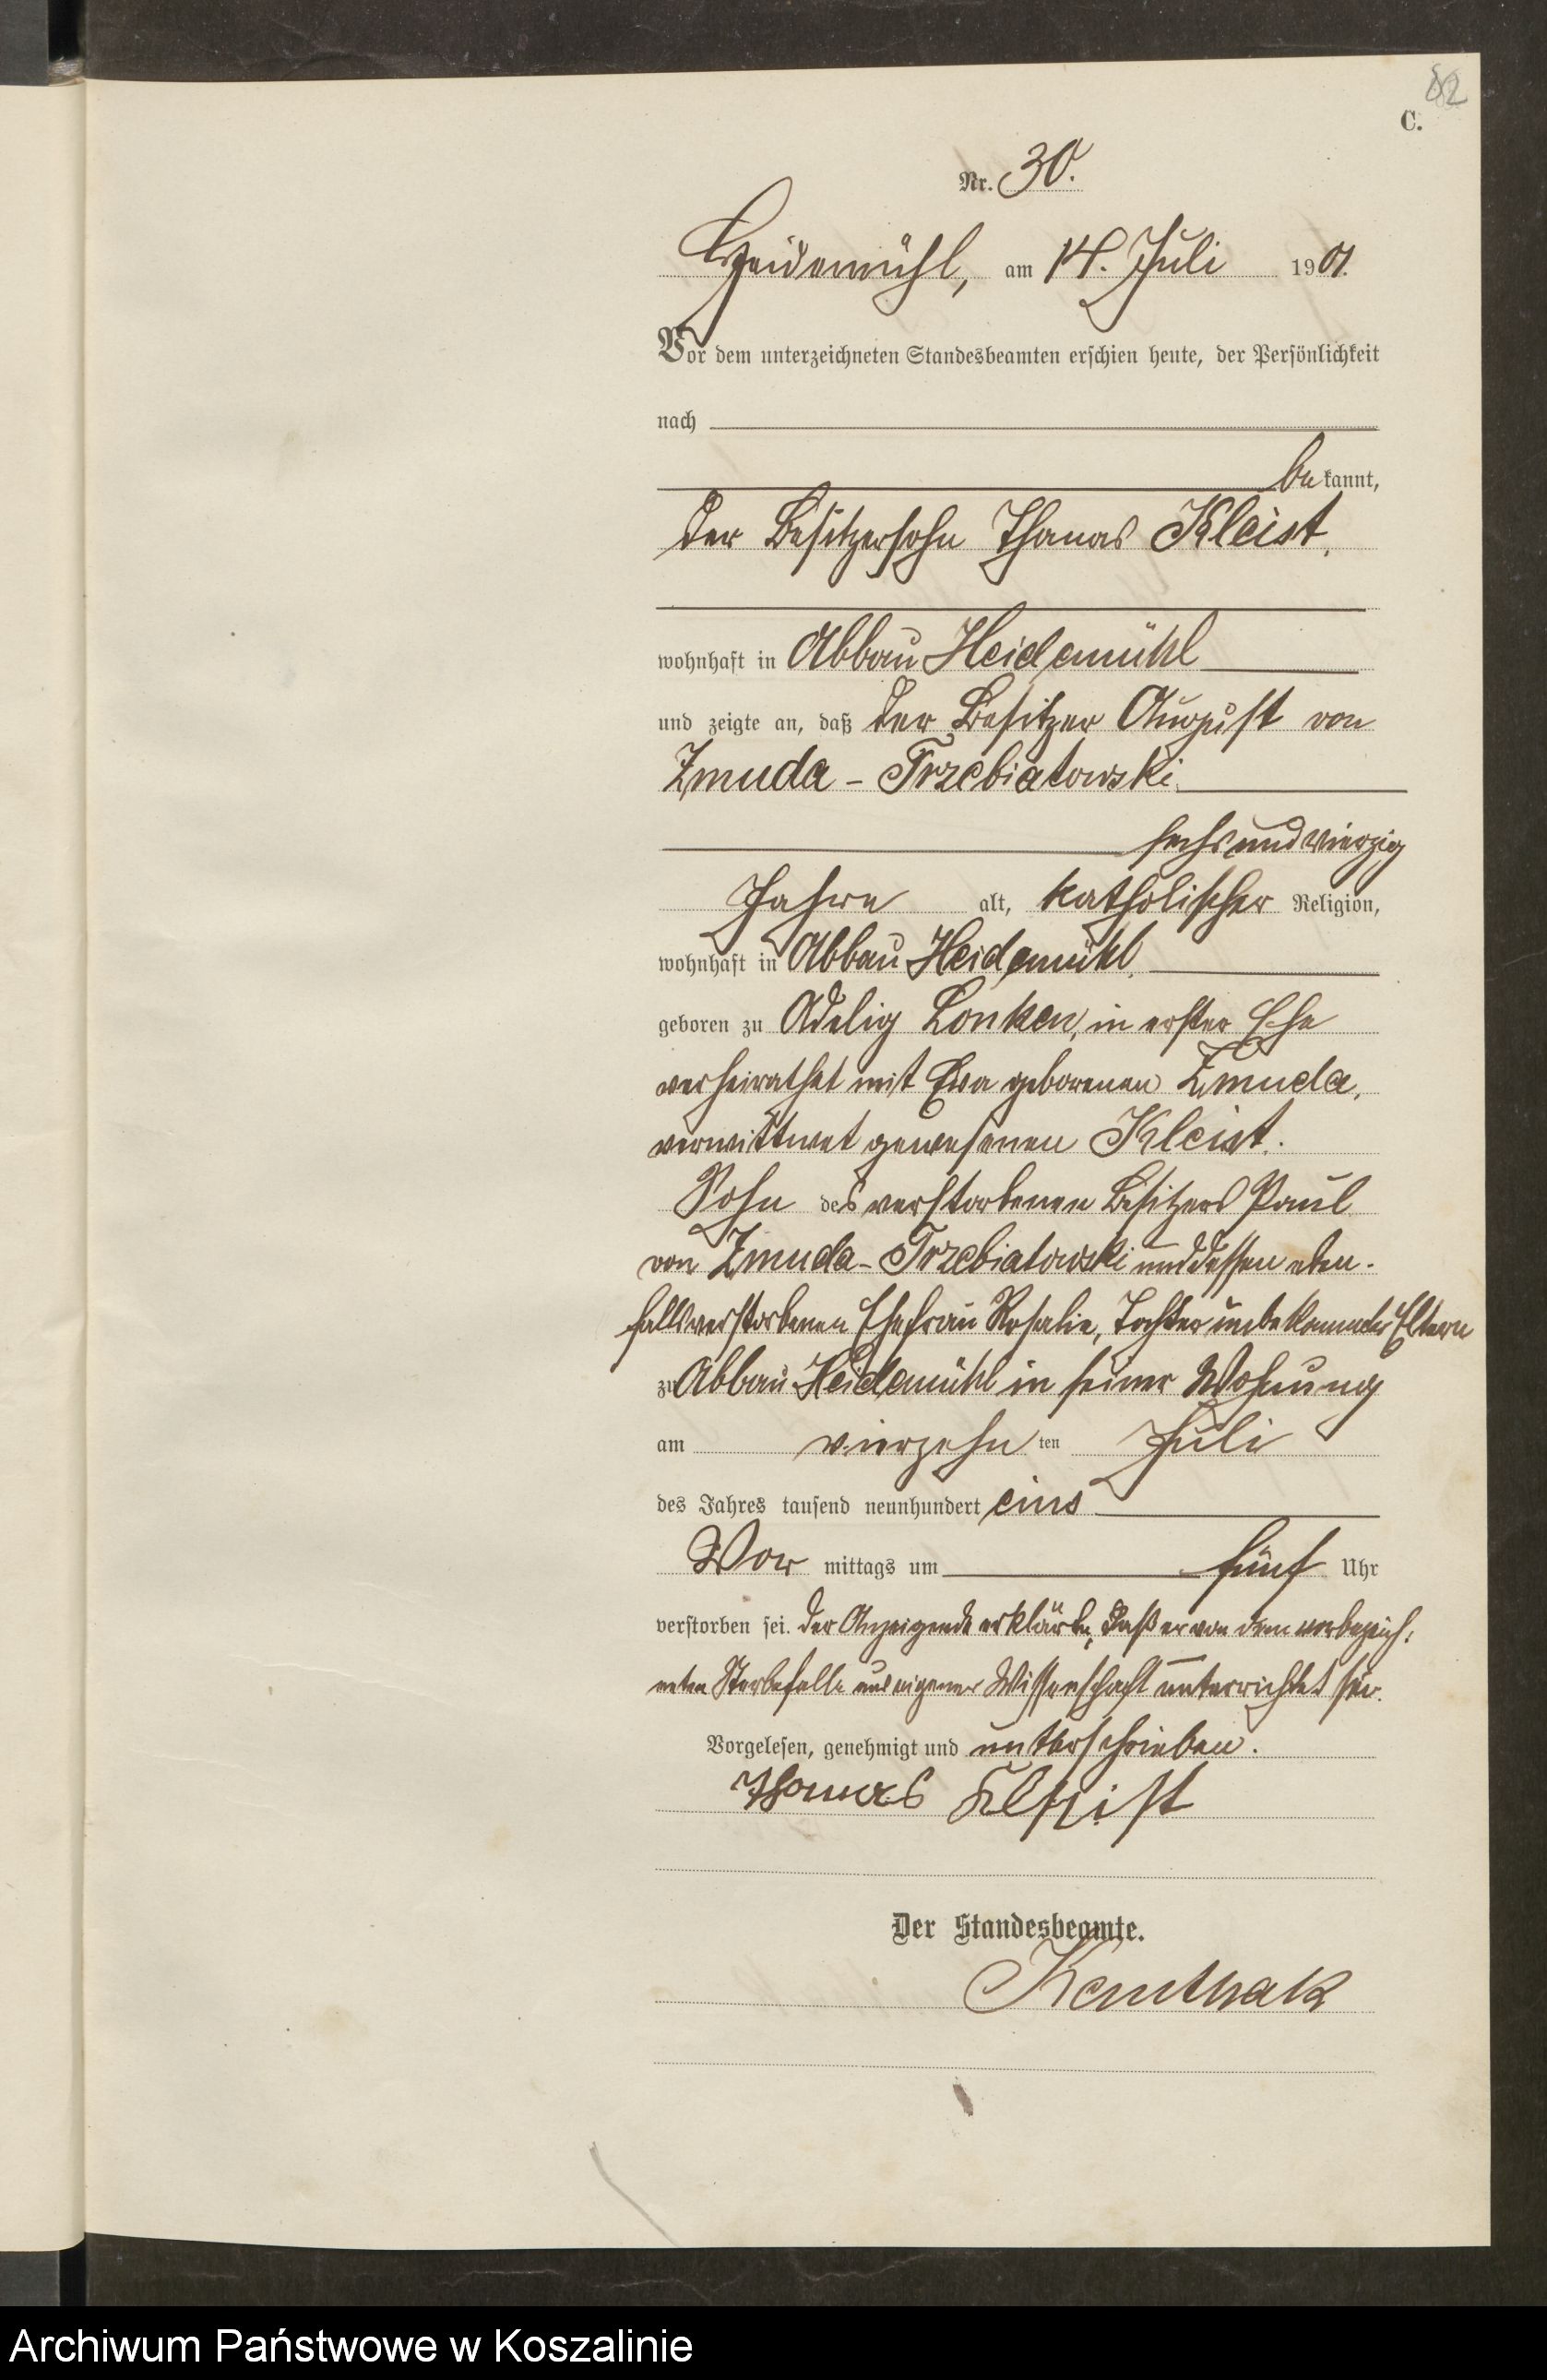 82
C.
Nr. 30.
Heidemühl, am 14. Juli 1901.
Vor dem unterzeichneten Standesbeamten erschien heute, der Persönlichkeit
nach
bekannt,
der Besitzersohn Thomas Kleist,
wohnhaft in Abbau Heidemühl
und zeigte an, daß der Besitzer August von
Zmuda - Trzebiatowski
sechsundvierzig
Jahre alt, katholischer Religion,
wohnhaft in Abbau Heidemühl,
geboren zu Adelig Lonken, in erster Ehe
verheirathet mit Eva geborenen Zmuda,
verwittwet gewesenen Kleist.
Sohn des verstorbenen Besitzers Paul
von Zmuda - Trzebiatowski und dessen eben-
falls verstorbenen Ehefrau Rosalie, Tochter unbekannter Eltern
zu Abbau Heidemühl in seiner Wohnung
am vierzehnten Juli
des Jahres tausend neunhundert eins
Vormittags um fünf Uhr
verstorben sei. Der Anzeigende erklärte, daß er von dem vorbezeich-
neten Sterbefalle aus eigener Wissenschaft unterrichtet sei.
Vorgelesen, genehmigt und unterschrieben.
Thomas Kleist
Der Standesbeamte.
Archiwum Państwowe w Koszalinie